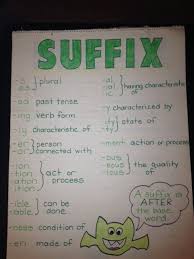 SUFFIX
-s
-es
plural
-ed past tense
-ing verb form
-ly characteristic of
-er
-or
person connected with
-ion
-tion
-ation
act or process
-ible
-able
can be done
-ness condition of
-en made of
-al
-ial
having characteristic of
-y characterized by
-ty
-ity
state of
-ment action or process
-ous
-eous
-ious
the quality of
A suffix is
AFTER
the base
word.